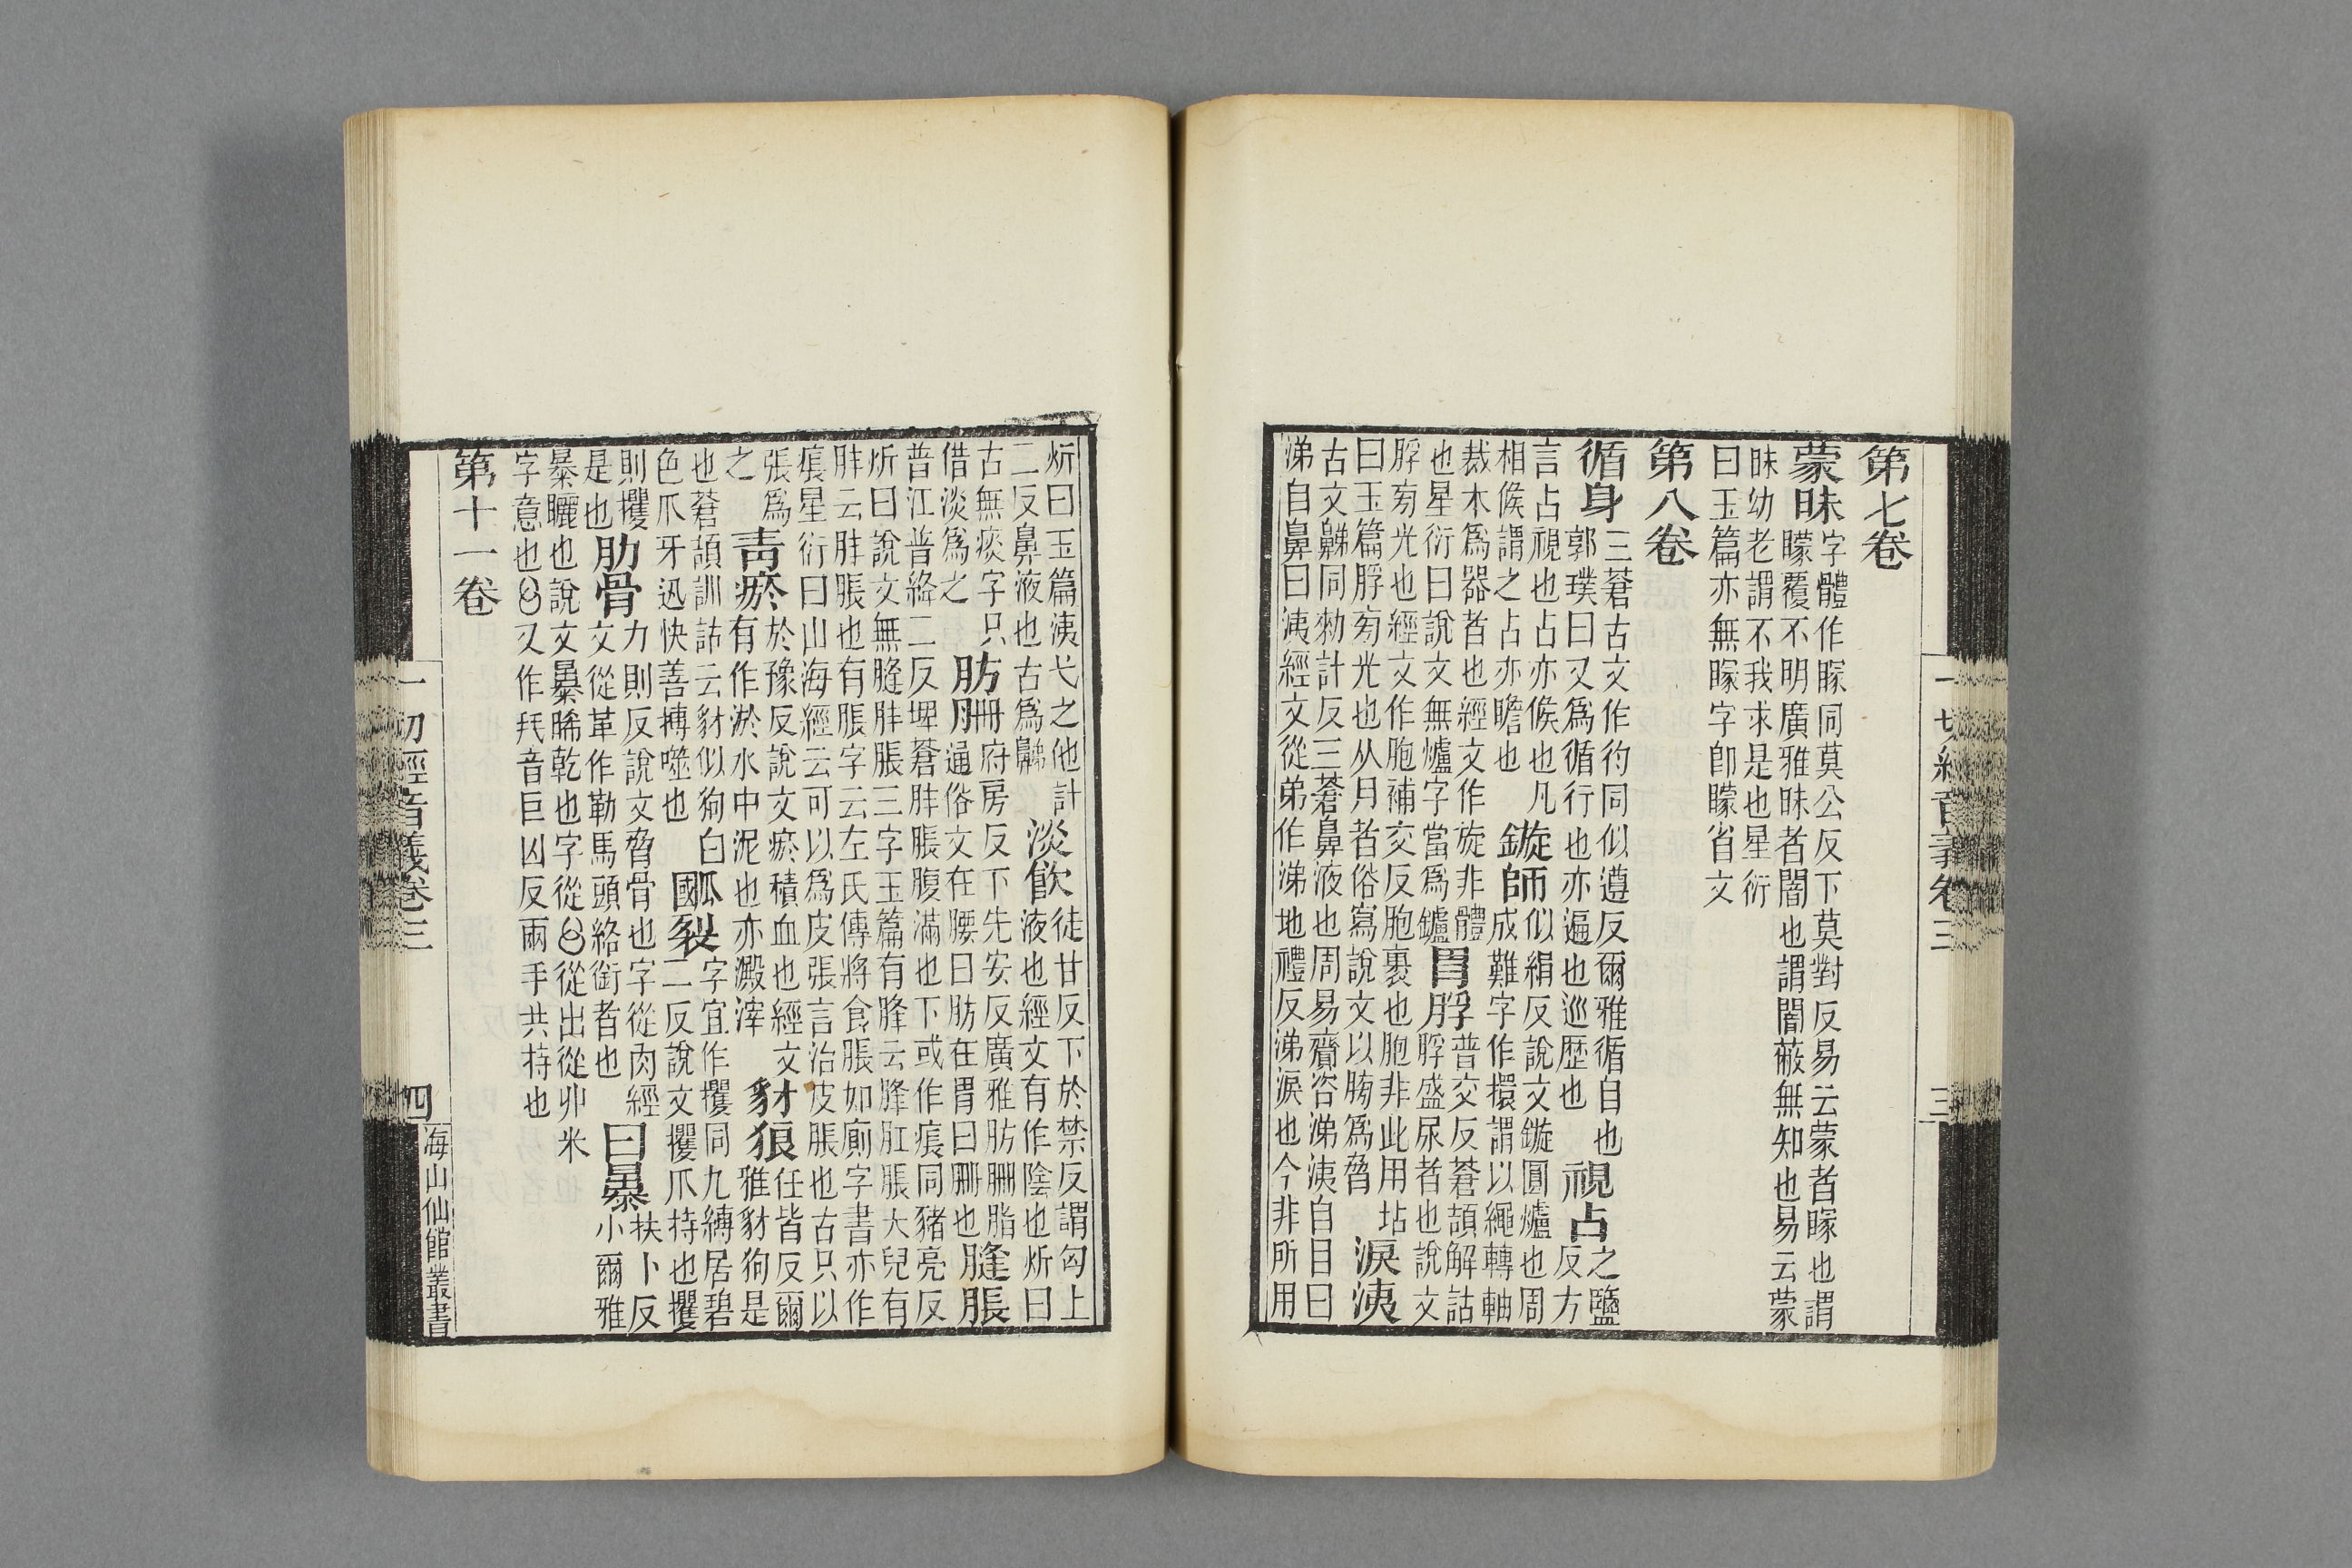 一切經音義卷三 三
第七卷
蒙昧字體作矇同莫公反下莫對反易云蒙者矇也謂
矇覆不明廣雅昧者闇也謂闇蔽無知也易云蒙
昧幼老謂不我求是也星衍
曰玉篇亦無矇字卽矇省文
第八卷
循身三蒼古文作彴同似遵反爾雅循自也
郭璞曰又爲循行也亦遍也巡歷也視占之鹽
反方
言占視也占亦候也凡
相候謂之占亦瞻也鏇師似絹反說文鏇圓爐也周
成難字作擐謂以繩轉軸
裁木爲器者也經文作旋非體
也星衍曰說文無爐字當爲鑪胃脬普交反蒼頡解詁
脬盛尿者也說文
脬㫄光也經文作胞補交反胞裹也胞非此用坫
曰玉篇脬㫄光也从月者俗寫說文以胯爲脅淚洟
古文同勑計反三蒼鼻液也周易齎咨涕洟自目曰
涕自鼻曰洟經文從弟作涕地禮反涕淚也今非所用
炘曰玉篇洟弋之他計
二反鼻液也古爲淡飮徒甘反下於禁反謂匈上
液也經文有作陰也炘曰
古無痰字只
借淡爲之肪𦙱府房反下先安反廣雅肪𦙱脂
通俗文在腰曰肪在胃曰𦙱也膖脹
普江普絳二反埤蒼胮脹腹滿也下或作痮同豬亮反
炘曰說文無膖胮脹三字玉篇有膖云膖肛脹大皃有
胮云胮脹也有脹字云左氏傳將食脹如廁字書亦作
痮星衍曰山海經云可以爲皮張言治皮脹也古只以
張爲
之靑瘀於豫反說文瘀積血也經文
有作淤水中泥也亦澱滓豺狼任皆反爾
雅豺狗是
也蒼頡訓詁云豺似狗白
色爪牙迅快善搏噬也裂字宜作攫同九縛居碧
二反說文攫爪持也攫
則攫
是也肋骨力則反說文脅骨也字從肉經
文從革作勒馬頭絡銜者也曰暴扶卜反
小爾雅
暴曬也說文㬥晞乾也字從從出從米
字意也又作音巨凶反兩手共持也
第十一卷
一切經音義卷三 四 海山仙館叢書